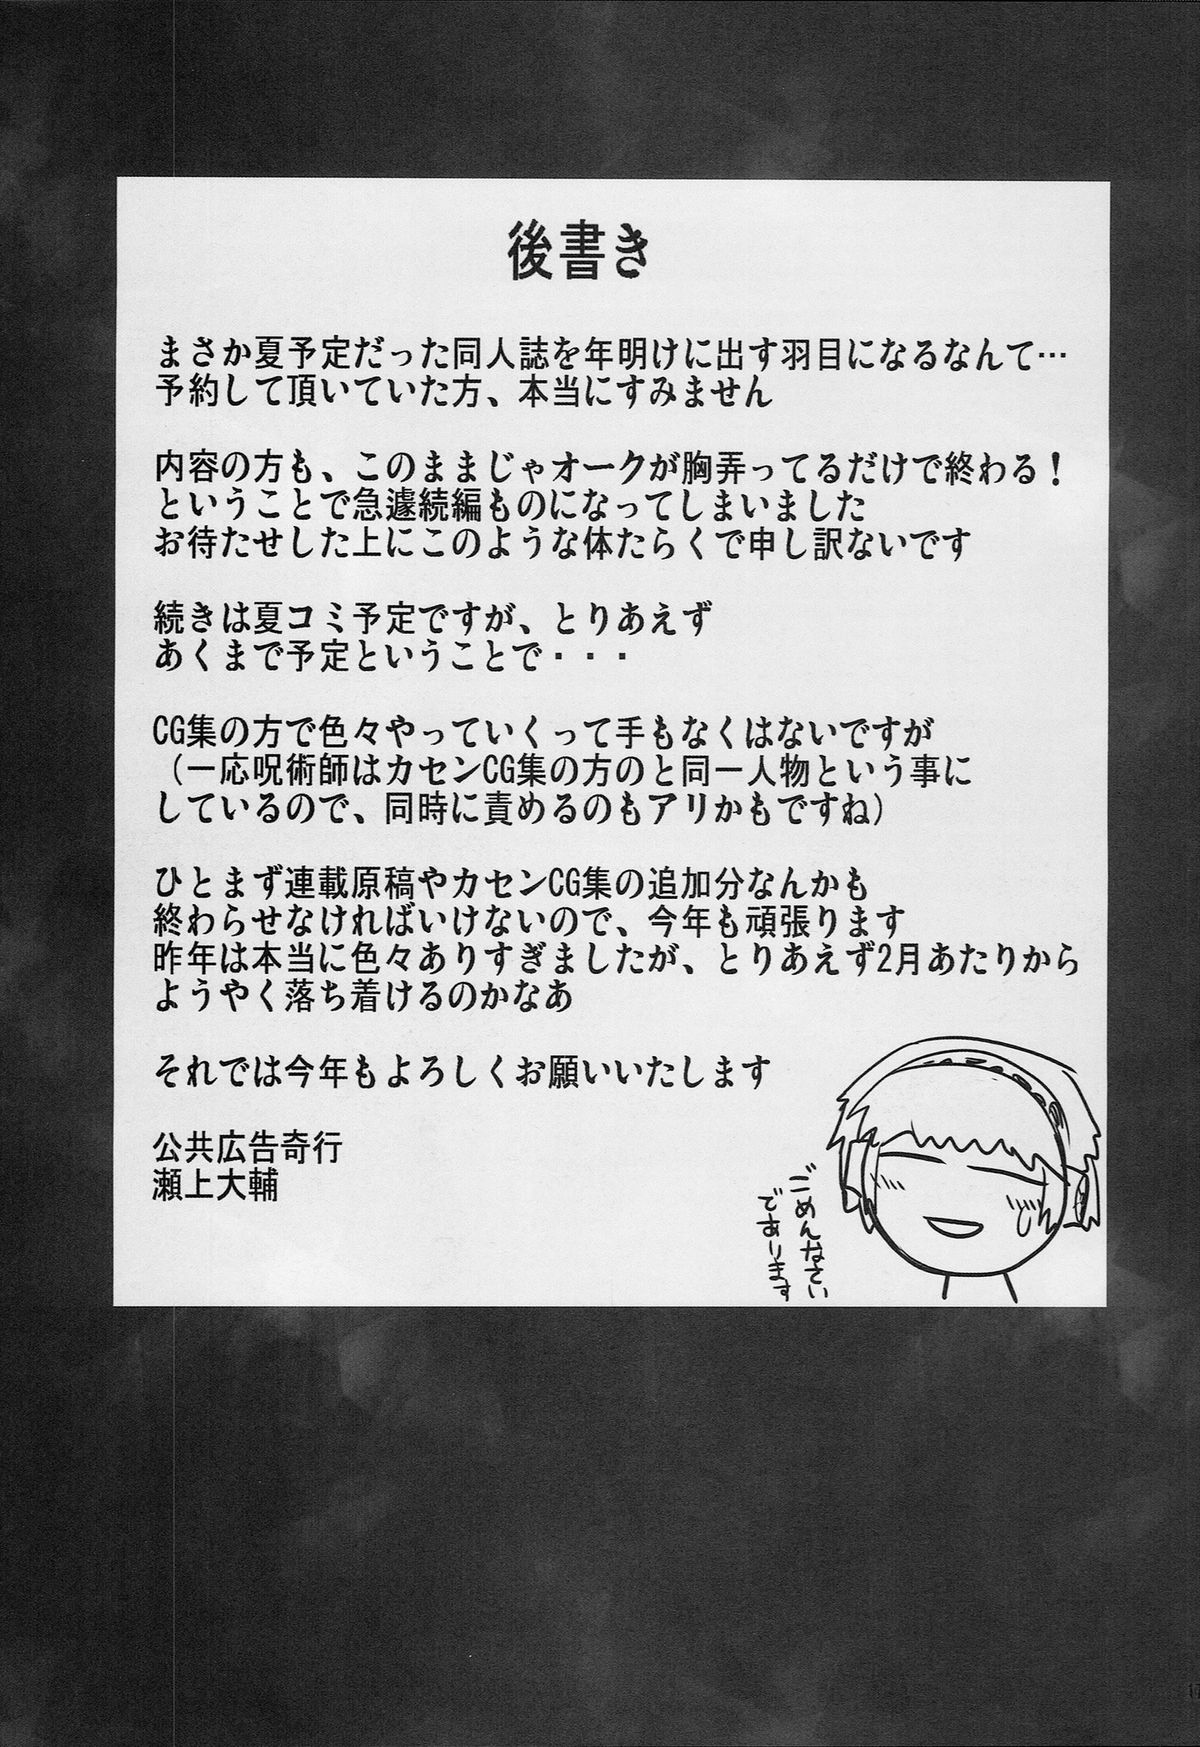 後書き
まさか夏予定だった同人誌を年明けに出す羽目になるなんて…
予約して頂いていた方、本当にすみません
内容の方も、このままじゃオークが胸弄ってるだけで終わる！
ということで急遽続編ものになってしまいました
お待たせした上にこのような体たらくで申し訳ないです
続きは夏コミ予定ですが、とりあえず
あくまで予定ということで・・・
CG集の方で色々やっていくって手もなくはないですが
（一応呪術師はカセンCG集の方のと同一人物という事に
しているので、同時に責めるのもアリかもですね）
ひとまず連載原稿やカセンCG集の追加分なんかも
終わらせなければいけないので、今年も頑張ります
昨年は本当に色々ありすぎましたが、とりあえず2月あたりから
ようやく落ち着けるのかなあ
それでは今年もよろしくお願いいたします
公共広告奇行
瀬上大輔
ごめんなさい
であります